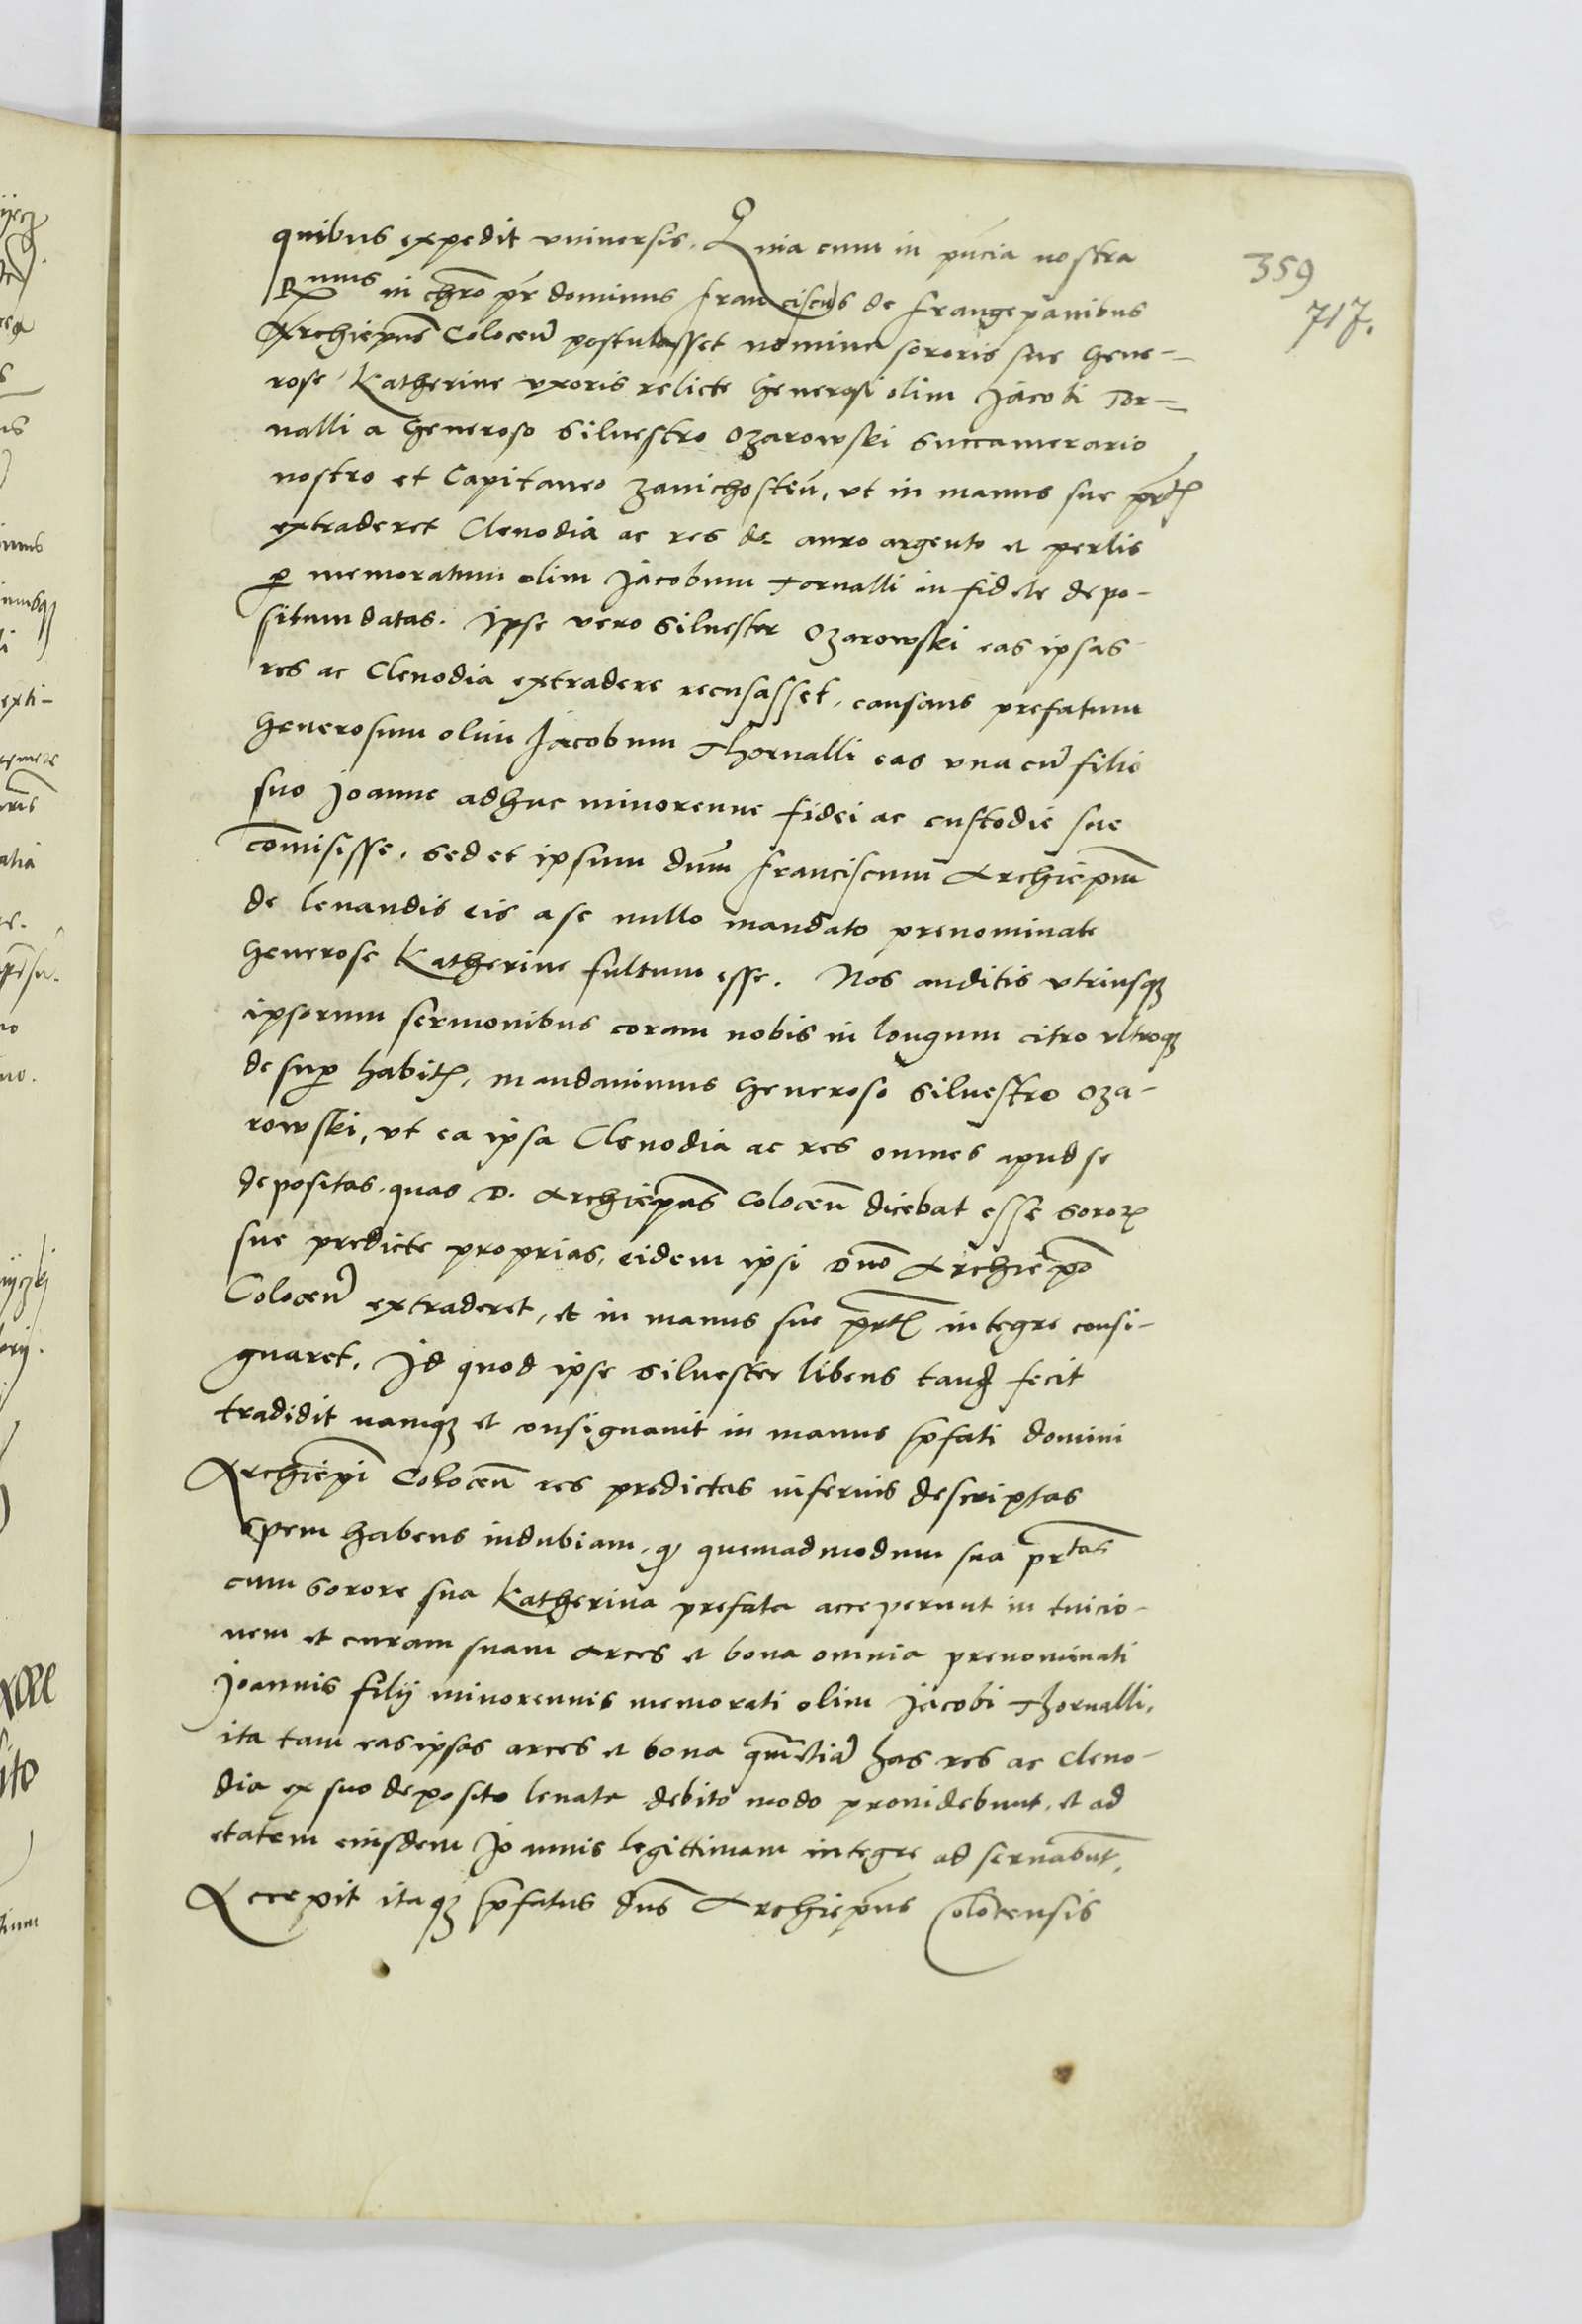 quibus expedit vniuersis. Quia cum in pńcia nostra
Rmus in chr̃o pr̃ dominus franciscus de frangepanibus
Archiepũs Colocen̄ postulasset nomine sororis sue Gene-
rose Katherine vxoris relicte Generosi olim Jacobi Tor-
nalli a Generoso Siluestro Ozarowski Succamerario
nostro et Capitaneo Zauichosten̄, vt in manus sue prt̃
extraderet Clenodia ac res de auro argento et perlis
ꝑ memoratum olim Jacobum tornalli in fidele depo-
situm datas. Ipse vero Siluester Ozarowski eas ipsas
res ac Clenodia extradere recusasset, causans prefatum
Generosum olim Jacobum thornalli eas vna cũ filio
suo Joanne adhuc minorenne fidei ac custodie sue
com̃isisse. Sed et ipsum dũm franciscum Archiep̃m
de leuandis eis a se nullo mandato prenominate
Generose Katherine fultum esse. Nos auditis vtriusqꝫ
ipsorum sermonibus coram nobis in longum citro vltroqꝫ
desuꝑ habit̃, mandauimus Generoso Siluestro Oza-
rowski, vt ea ipsa Clenodia ac res omnes apud se
depositas, quas D. Archiepũs Colocen̄ dicebat esse soror̃
sue predicte proprias, eidem ipsi Dnõ Archiep̃o
Colocen̄ extraderet, et in manus sue prt̃ integre consi-
gnaret. Id quod ipse Siluester libens tanꝗ fecit
tradidit namqꝫ et consignauit in manus p̃fati domini
Archiep̃i Colocen̄ res predictas inferius descriptas
spem habens indubiam, ꝙ quemadmodum sua prtas
cum sorore sua Katherina prefata acceperunt in tuicio-
nem et curam suam arces et bona omnia prenominati
Joannis filij minorennis memorati olim Jacobi thornalli,
ita tam eas ipsas arces et bona qũm etiã has res ac cleno-
dia ex suo deposito leuata debito modo prouidebunt, et ad
etatem eiusdem Joannis legittimam integre adseruabũt.
Accepit itaqꝫ p̃fatus dũs Archiepũs Colocensis
359
717.